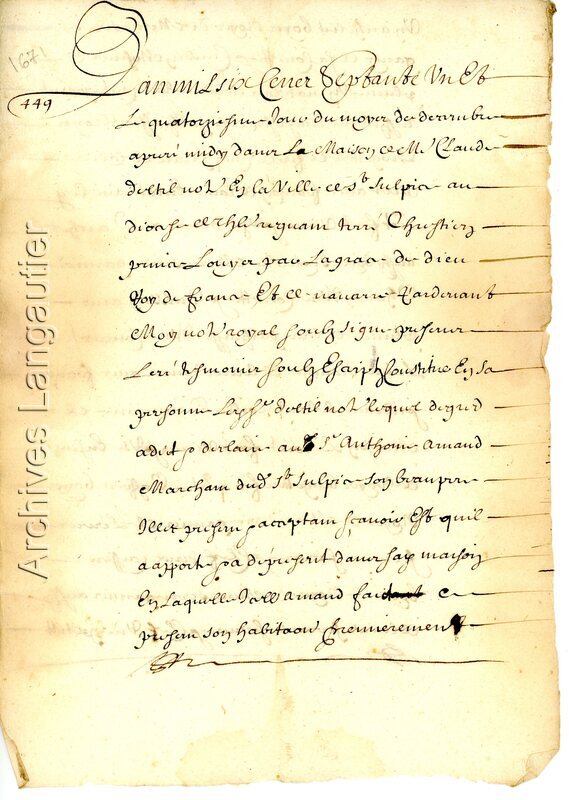 1671
449
L'an mil six Cens Septante Un Et
Le quatorziesme Jour du moys de decembre
apres midy dans La Maison de Me Claude
deltil notre En la Ville de St Sulpice au
diocese de Thle regnant tres Chrestien
prince Louys par La grace de dieu
Roy de france Et de navarre Pardevant
Moy notre royal soubz signe presens
Les tesmoins soubz Escriptz Constitue En sa
personne deltil notre lequel de gred
a dict declaire au Sr Anthoine Arnaud
Marchant dud St Sulpice son beau pere
Illec presen acceptam scavoir Est quil
a apporte dans sa maison
En Laquelle Icell Arnaud fai ce
presen son habitaon Premierement
Archives Langautier